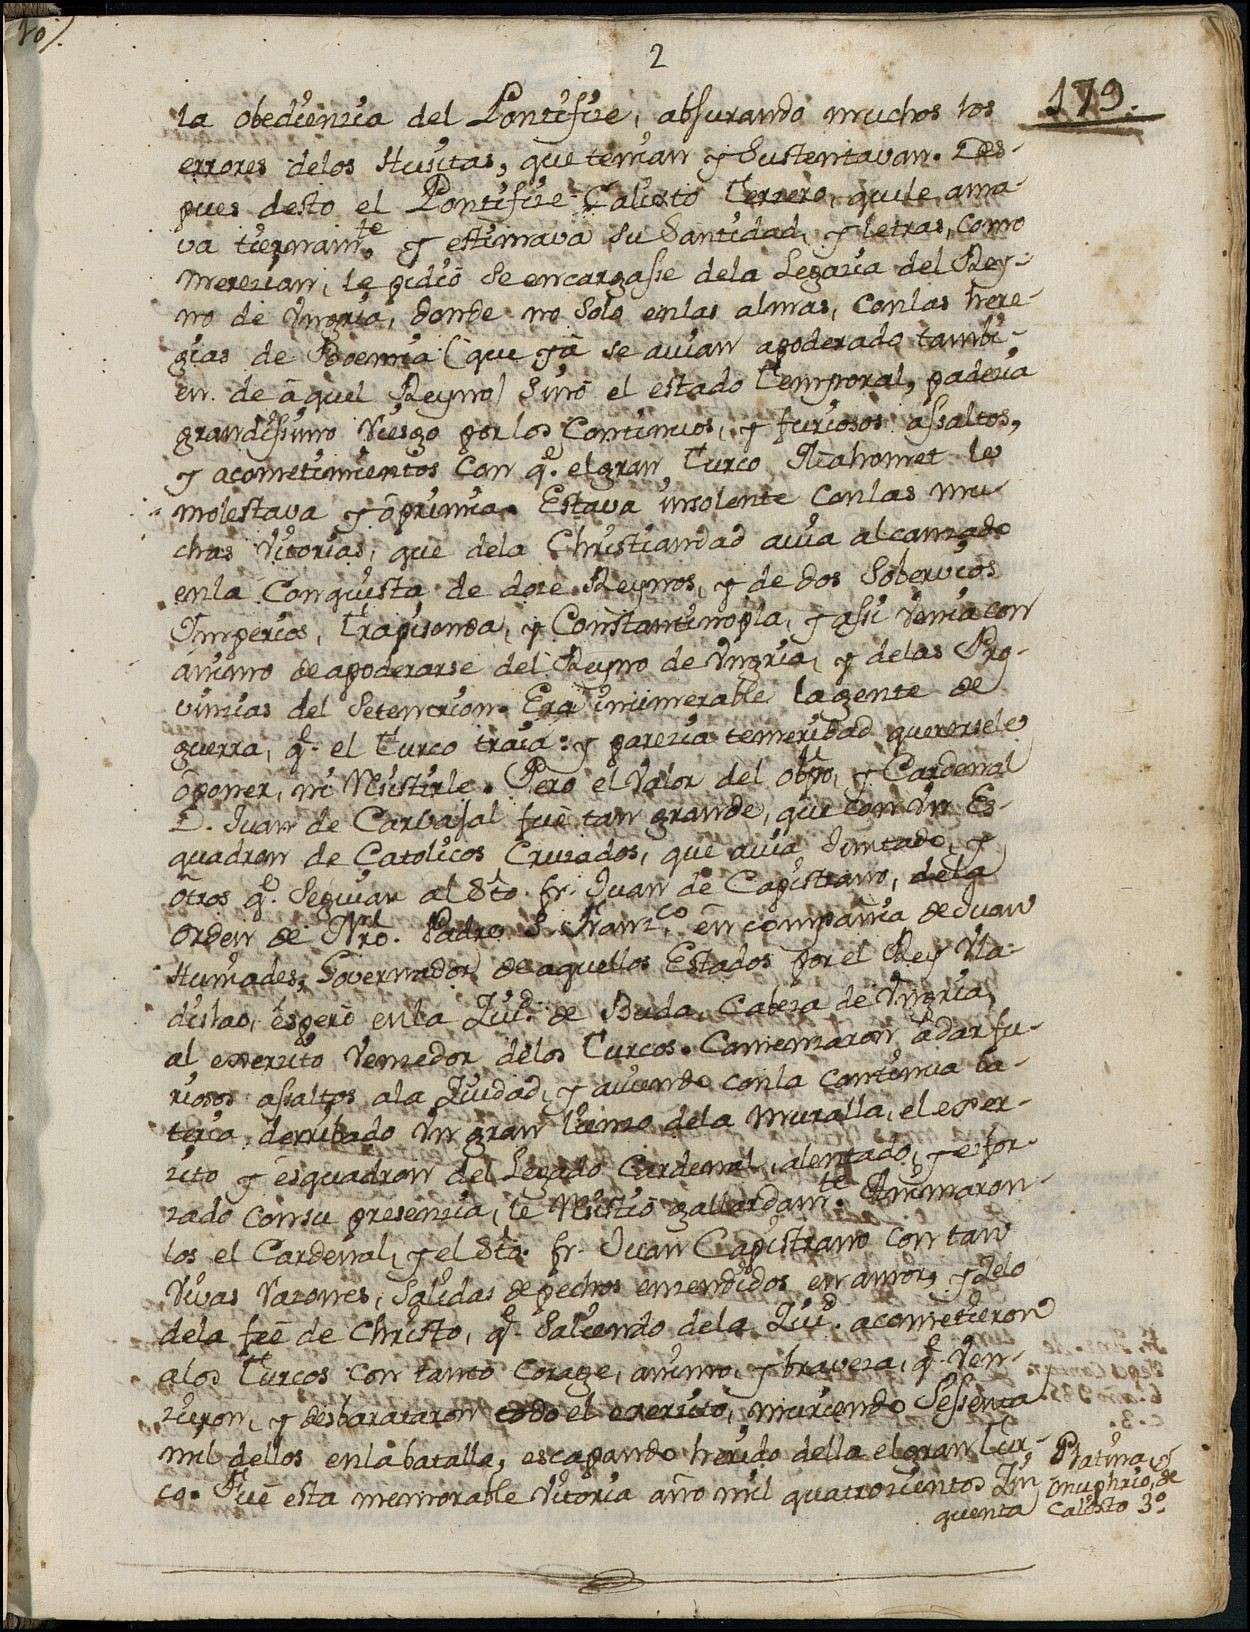 10).
2
179.
la obediencia del Pontifize, abjurando muchos los
errores delos Husitas, que tenian y Sustentavan. Des-
pues desto el Pontifize Calixto Terzero, qule ama-
va tiernamte. y estimava su Santidad, y letras, como
merezian, le pidiò se encargasse dela Legazia del Rey-
no de Vngria, donde no Solo enlas almas, conlas here-
gias de Boemia (que yà se avian apoderado tambi-
en. de àquel Reyno) Sinò el estado Temporal, padezia
grandissimo Riesgo por los Continuos, y furiosos assaltos,
y acometimientos Con q̃. el gran Turco Mahomet le
molestava y òprimia. Estava insolente Conlas mu-
chas Vitorias, que dela Christiandad avia alcanzado
enla Conquista de doze Reynos, y de dos Sobervios
Imperios, Trapisonda, y Constantinopla, y assi Venia con
animo de apoderarse del Reyno de Vngria, y delas Pro-
vinzias del Setentrion. Era inumerable la gente de
guerra, q̃. el Turco traia: y parezia temeridad querersele
òponer, ni Resistirle. Pero el Valor del obpo, y Cardenal
D. Juan de Carbajal fuè tan grande, que con Vn Es-
quadron de Catolicos Cruzados, que avia Juntado, y
òtros q̃. Seguian al Sto. fr. Juan de Capistrano, dela
orden de Nro. Padre S. Franzco. en compañia de Juan
Huniades, Governador de aquellos Estados por el Rey Vla-
dislao, èsperò enla Ziud. de Buda, Cabeza de Vngria,
al exerzito Venzedor delos Turcos. Comenzaron à dar fu-
riosos assaltos ala Ziudad, y aviendo conla continua ba-
teria, derribado Vn gran lienzo dela muralla, el exer-
zito y èsquadron del Legado Cardenal, alentado, y esfor-
zado consu presenzia, le Resistiò gallardamte. Animaron-
los el Cardenal, y el Sto. fr. Juan Capistrano con tan
Vivas Razones, Salidas de pechos enzendidos en amor, y Zelo
dela feè de Christo, q̃. Saliendo dela Ziud. acometieron
alos Turcos con tanto corage, animo, y braveza, q̃. Ven-
zieron, y desbarataron todo el exerzito, muriendo Sessenta
mil dellos enla batalla, escapando herido della el gran Tur-
co. Fuè esta memorable Vitoria año mil quatrozientos Zin
quenta
Platina, y
Onuphrio, de
Calixto 3º.